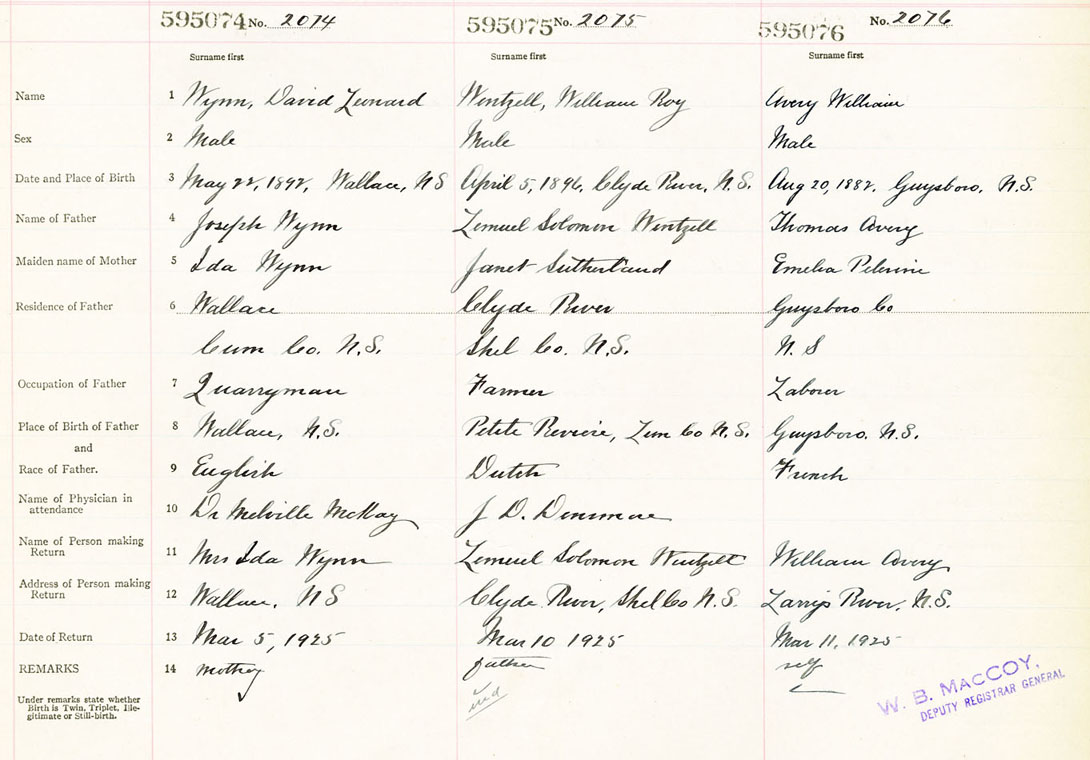 595074 No. 2074 595075 No. 2075 595076 No. 2076
Surname first Surname first Surname first
Name 1 Wynn, David Leonard Wentzell, William Roy Avery William
Sex 2 Male Male Male
Date and Place of Birth 3 May 22, 1892, Wallace, NS April 5, 1896, Clyde River, N.S. Aug 20, 1882, Guysboro, N.S.
Name of Father 4 Joseph Wynn Lemuel Solomon Wentzell Thomas Avery
Maiden name of Mother 5 Ida Wynn Janet Sutherland Emelia Pelerine
Residence of Father 6 Wallace Clyde River Guysboro Co
Cum Co. N.S. Shel Co. N.S. N.S
Occupation of Father 7 Quarryman Farmer Laborer
Place of Birth of Father 8 Wallace, N.S. Petite Reviere, Lun Co N.S. Guysboro, N.S.
and
Race of Father. 9 English Dutch French
Name of Physician in
attendance 10 Dr Melville McKay J D. Densmore
Name of Person making
Return 11 Mrs Ida Wynn Lemuel Solomon Wentzell William Avery
Address of Person making
Return 12 Wallace, NS Clyde River, Shel Co N.S. Larrys River, N.S.
Date of Return 13 Mar 5, 1925 Mar 10 1925 Mar 11, 1925
REMARKS 14 mother father self
Under remarks state whether
Birth is Twin, Triplet, Ille-
gitimate or Still-birth.
W. B. MACCOY,
DEPUTY REGISTRAR GENERAL